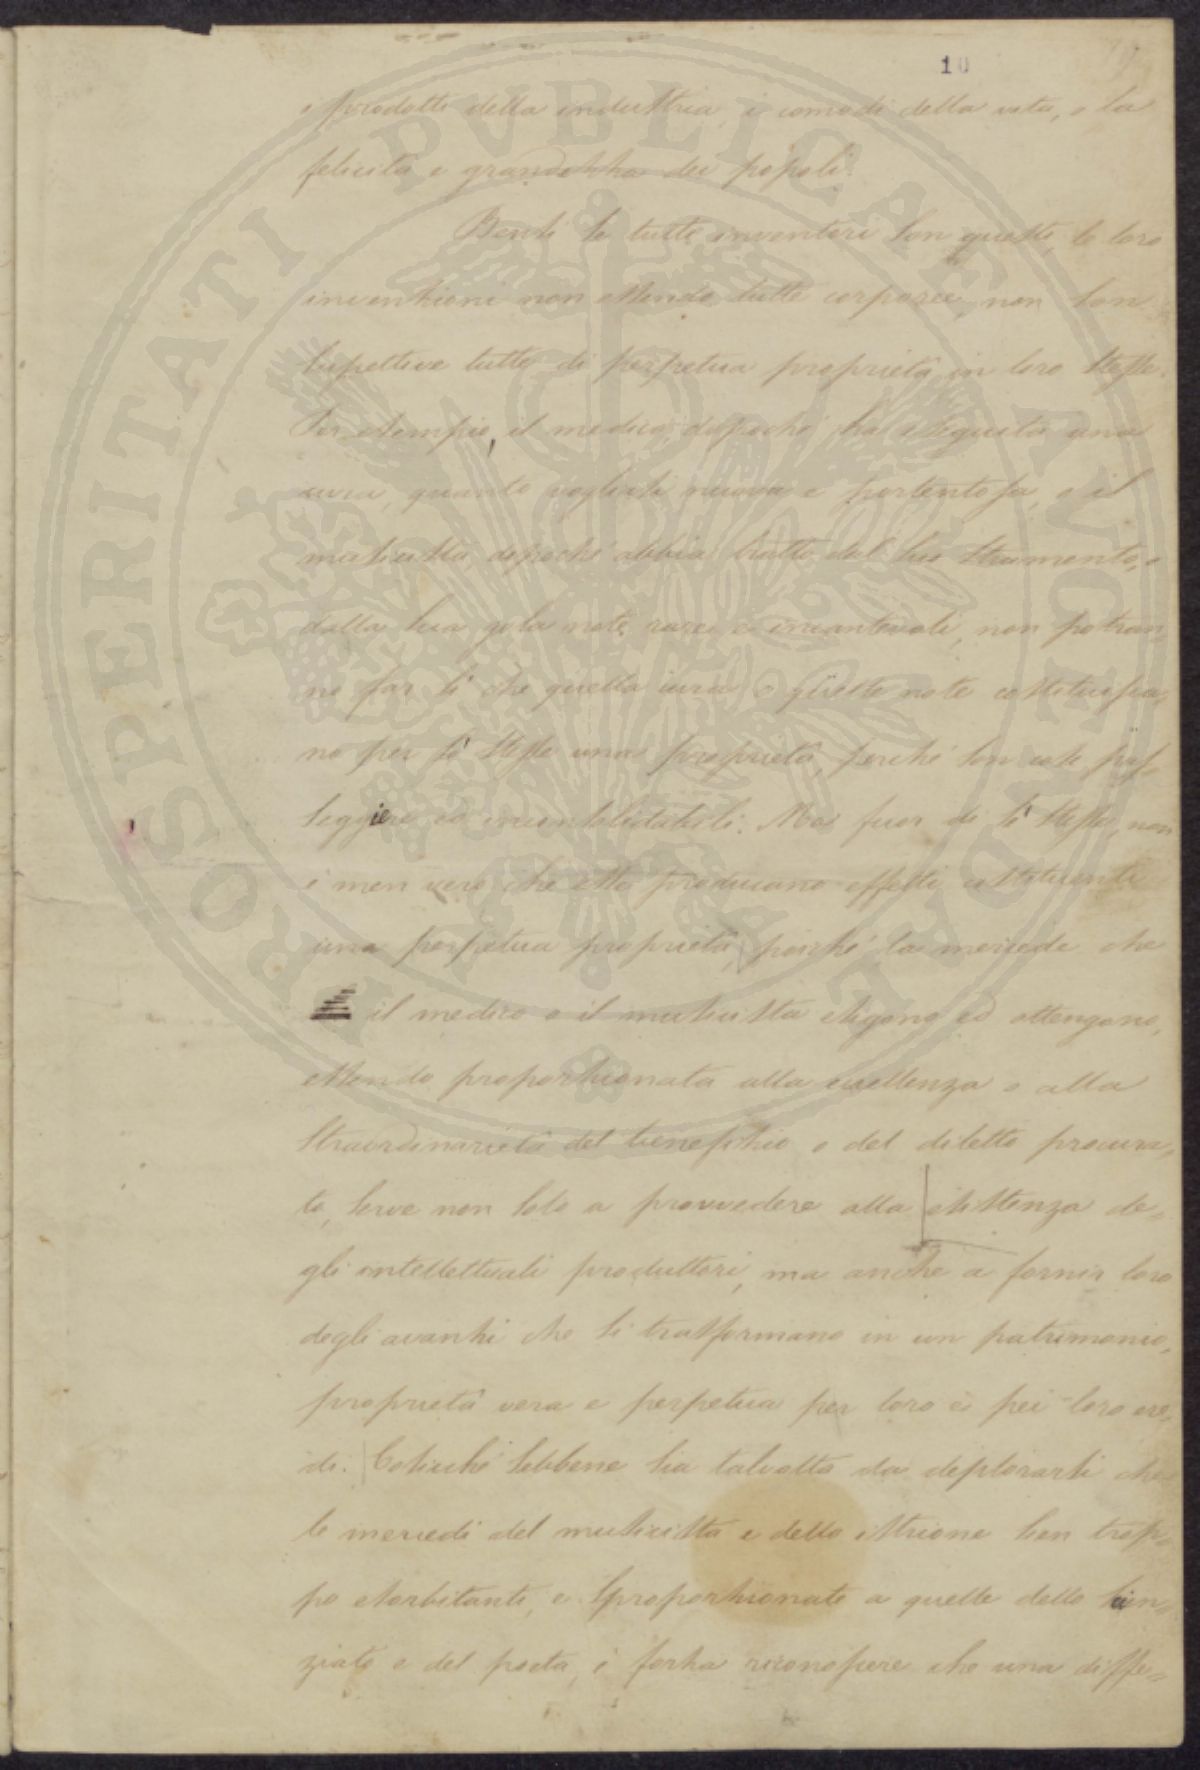 10
i prodotti della industria, i comodi della vita, e la
felicità e grandezza dei popoli.
Bensì se tutti inventori son questi, le loro
invenzioni non essendo tutte corporee, non son
suscettive tutte di perpetua proprietà in loro stesse.
Per esempio, il medico, dopochè ha eseguita una
cura, quanto vogliasi nuova e portentosa, o il
musicista, dopochè abbia tratto dal suo strumento, o
dalla sua gola note rare e incantevoli, non potran-
no far sì che quella cura o quelle note costituisca-
no per sè stesse una proprietà, perchè son cose pas-
seggiere ed inconsolidabili. Ma fuor di sè stesse, non
è men vero che esse producano effetti costituenti
una perpetua proprietà, poichè la mercede che
il medico o il musicista esigono ed ottengono,
essendo proporzionata alla eccellenza o alla
straordinarietà del beneficio o del diletto procura-
to, serve non solo a provvedere alla esistenza de-
gli intellettuali produttori, ma anche a fornir loro
degli avanzi che si trasformano in un patrimonio,
proprietà vera e perpetua per loro e pei loro ere-
di. Cosicchè sebbene sia talvolta da deplorarsi che
le mercedi del musicista e dello istrione sien trop-
po esorbitanti, e sproporzionate a quelle dello scien-
ziato e del poeta, è forza riconoscere che una diffe-
PROSPERITATI PVBLICAE AVGENDAE